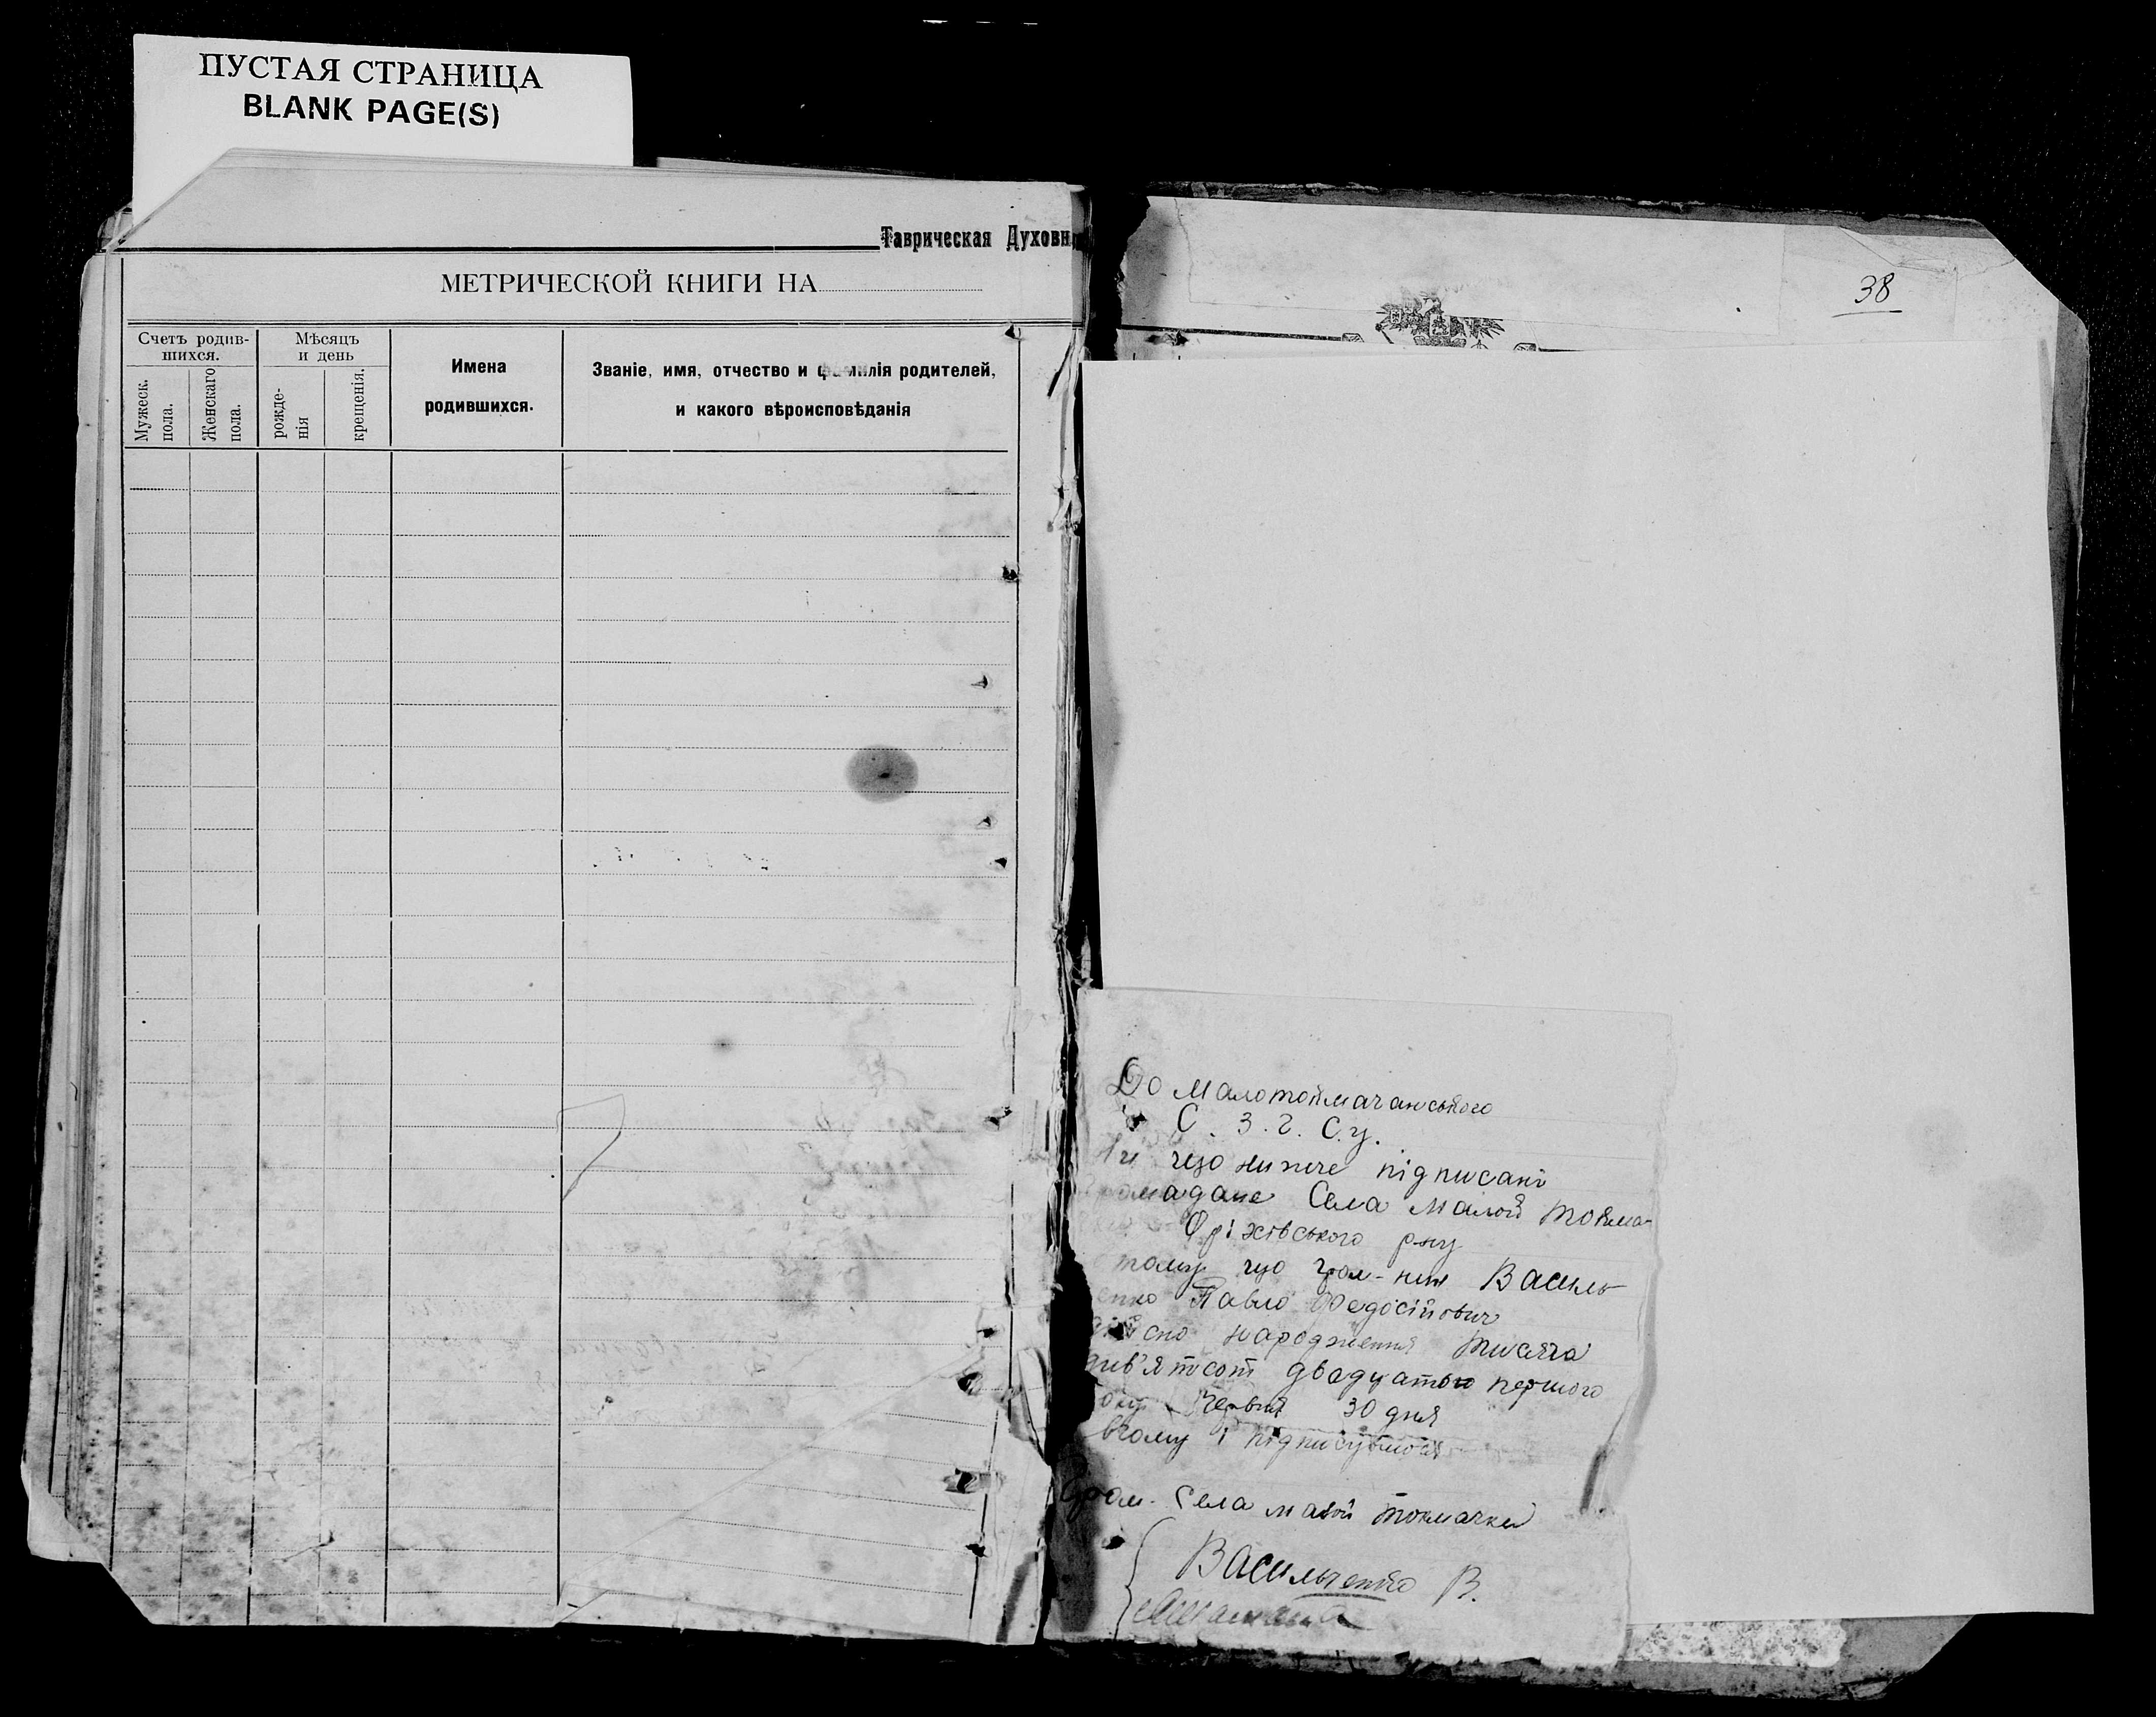 ПУСТАЯ СТРАНИЦА
BLANK PAGE(S)
Таврическая Духовн
МЕТРИЧЕСКОЙ КНИГИ НА
Счетъ родив-
шихся.
Мужеск.
пола.
Женскаго
пола.
Мѣсяцъ
и день
рожде-
нія
крещенія.
Имена
родившихся.
Званіе, имя, отчество и фамилія родителей,
и какого вѣроисповѣданія
38
До Малотокмачанського
С. З. Г. С.у.
що нижче підписані
громадане Села Малой Токма-
Оріхівського р-ну
тому що гром-нин Василь
енко Павло Федосійович
дійсно народження тисяча
дев'ятсот двадцатого першого
року Червня 30 дня
вчому і підписуємося
Гром. Села малой токмачки
Васильченко В.